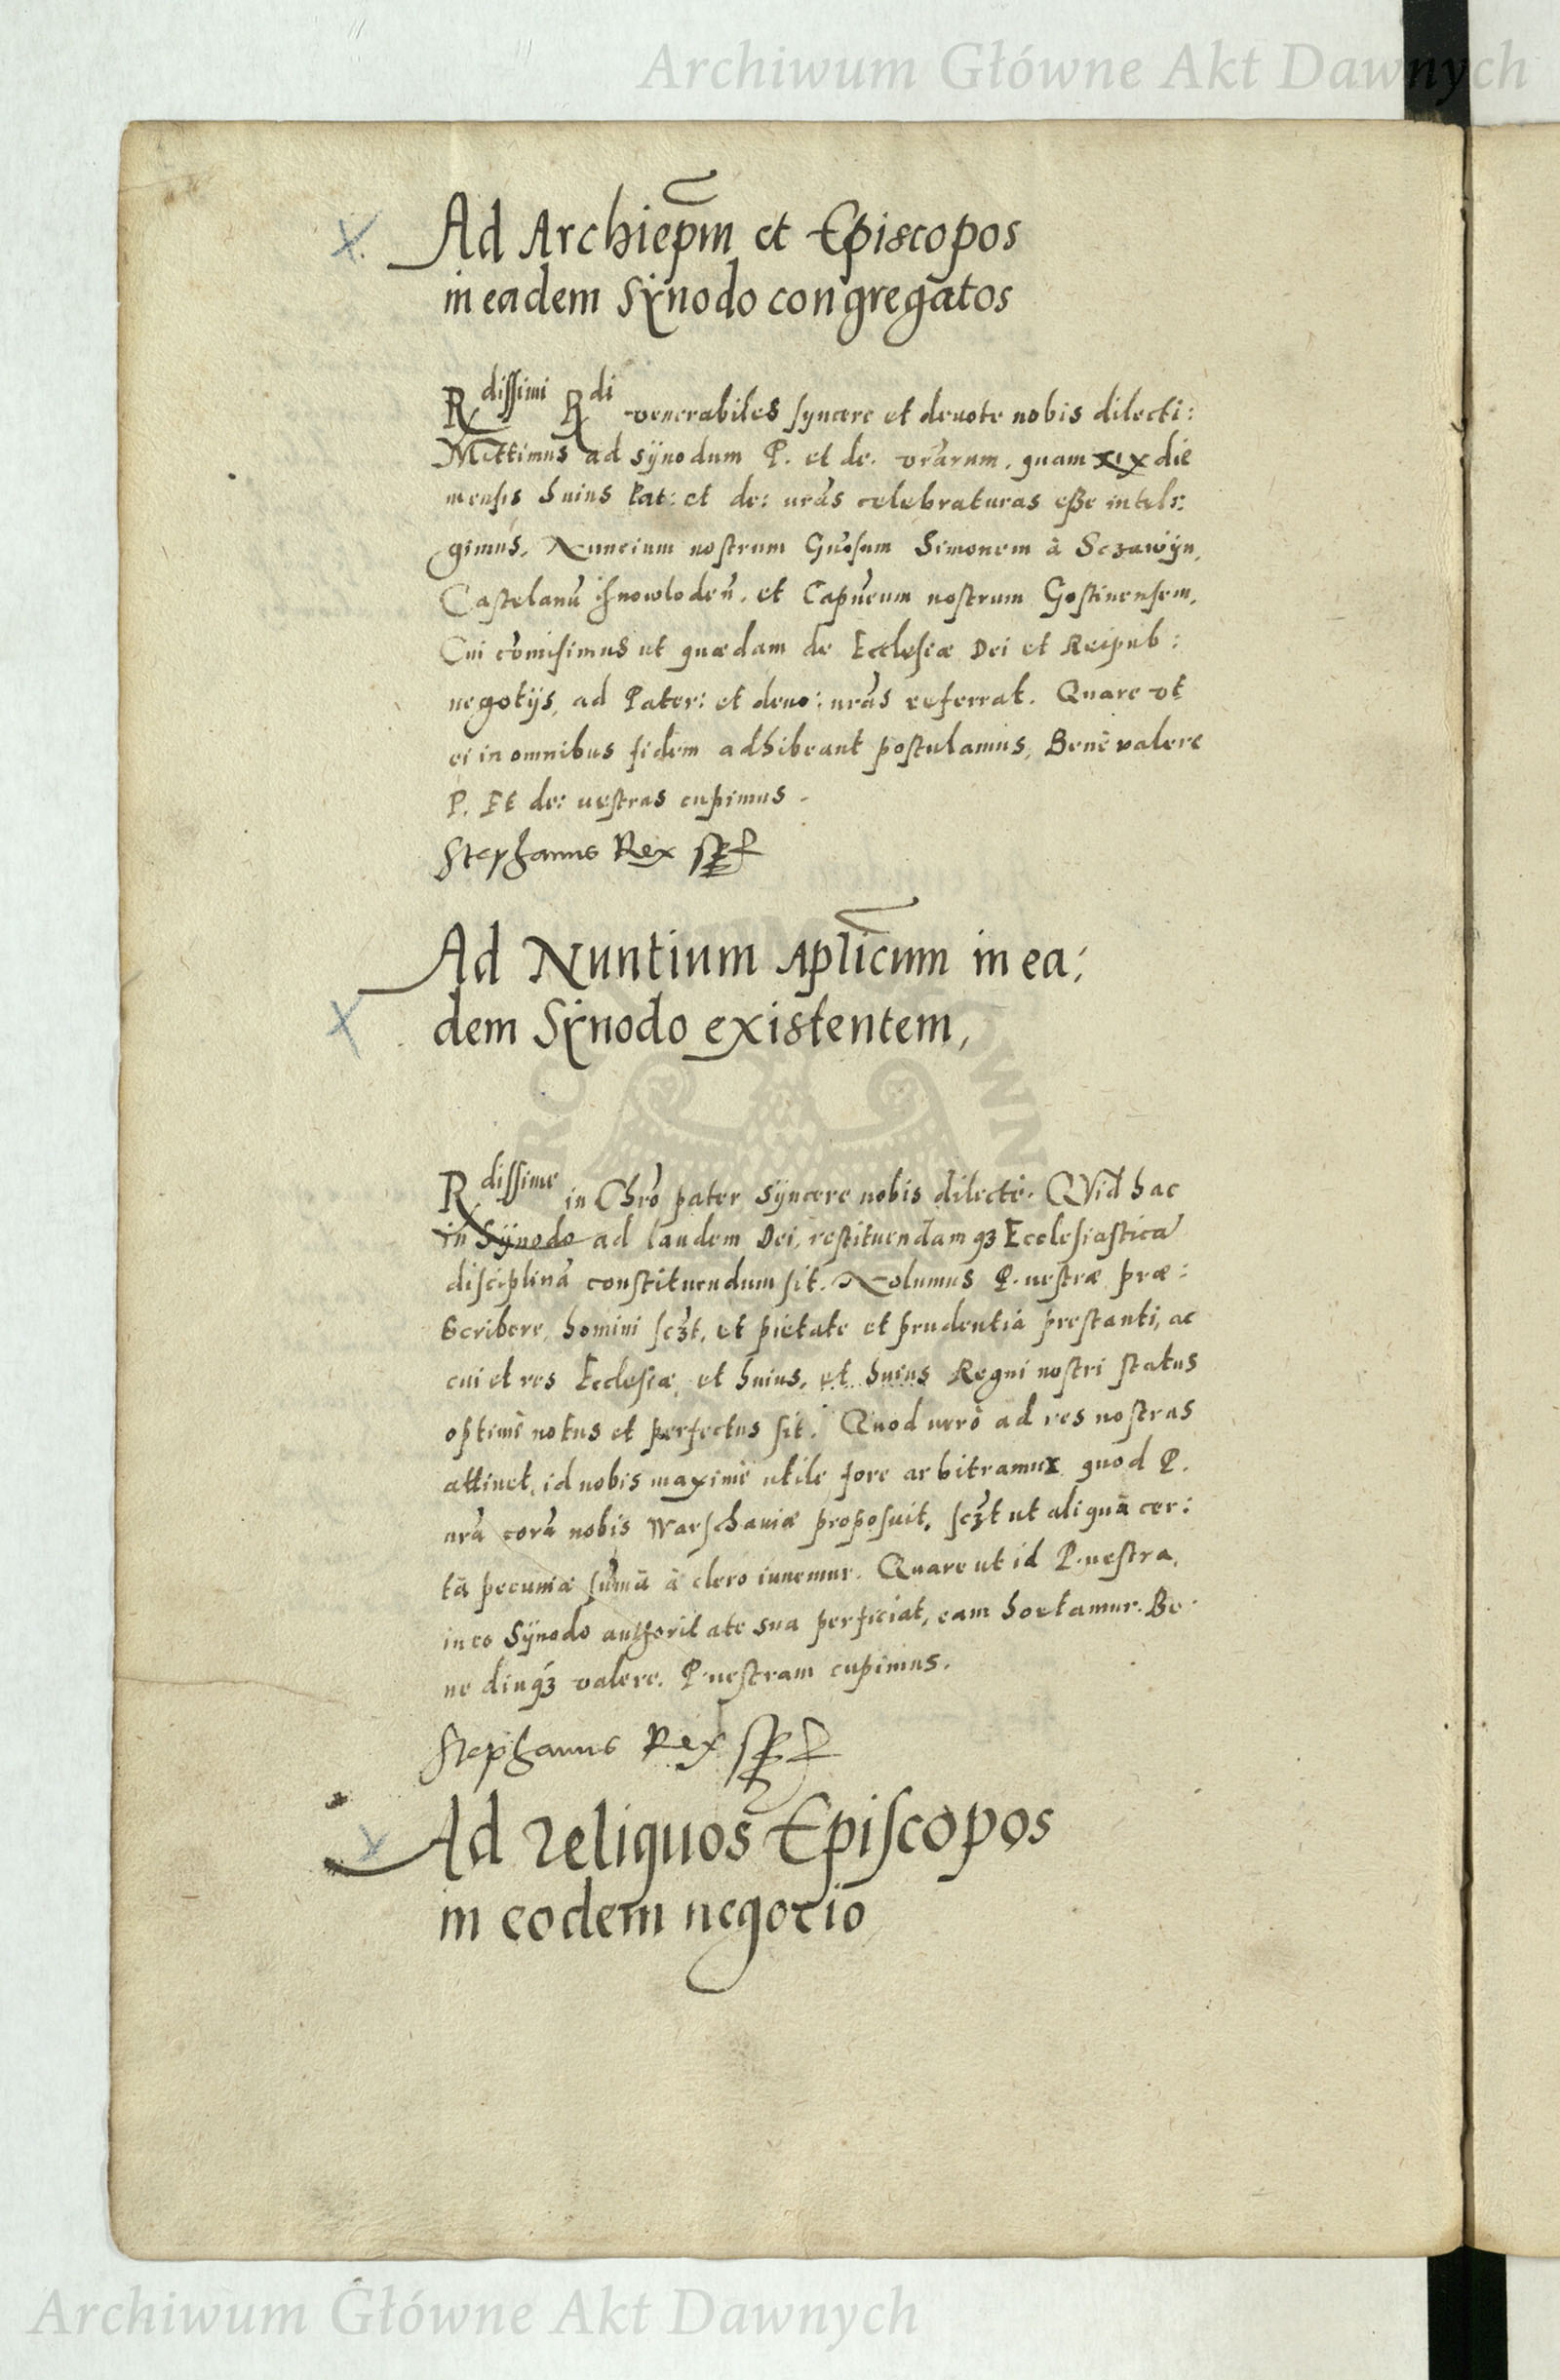 Archiwum Główne Akt Dawnych
Ad Archiepm̃ et Episcopos
in eadem Synodo congregatos
Rdissimi Rdi venerabiles syncere et deuote nobis dilecti:
Mittimus ad sÿnodum P. et de. vrãrum, quam XIX die
mensis huius Pat: et de: urãs celebraturas eße inteli:
gimus, Nuncium nostrum Gñosum Simonem à Sczawÿn,
Castelanũ Jnowloden̄, et Capñeum nostrum Gostinensem,
Cui com̃isimus ut quædam de Ecclesiæ Dei et Reipub:
negotijs, ad Pater: et deuo: urãs referrat. Quare vt
ei in omnibus fidem adhibeant postulamus, Benè valere
P. Et de: uestras cupimus.
Stephanus Rex
Ad Nuntium Aplicum in ea:
dem Synodo existentem,
Rdissime in Chrõ pater Sÿncere nobis dilecte. QVid hac
in Sÿnodo ad laudem Dei, restituendamqȝ Ecclesiasticã
disciplinã constituendum sit. Nolumus P. uestræ præ:
scribere, homini scȝt, et pietate et prudentia prestanti, ac
cui et res Ecclesiæ, et huius, et huius Regni nostri status
optimè notus et perfectus sit. Quod uerò ad res nostras
attinet, id nobis maximè utile fore arbitramur quod P.
urã corã nobis Warschauiæ proposuit, scȝt ut aliquã cer:
tã pecuniæ sum̃ã à clero iuuemur. Quare ut id P. uestra,
in eo Sÿnodo authoritate sua perficiat, eam hortamur. Be
ne diuqȝ valere. P. uestram cupimus.
Stephanus Rex
Ad reliquos Episcopos
in eodem negocio
Archiwum Główne Akt Dawnych